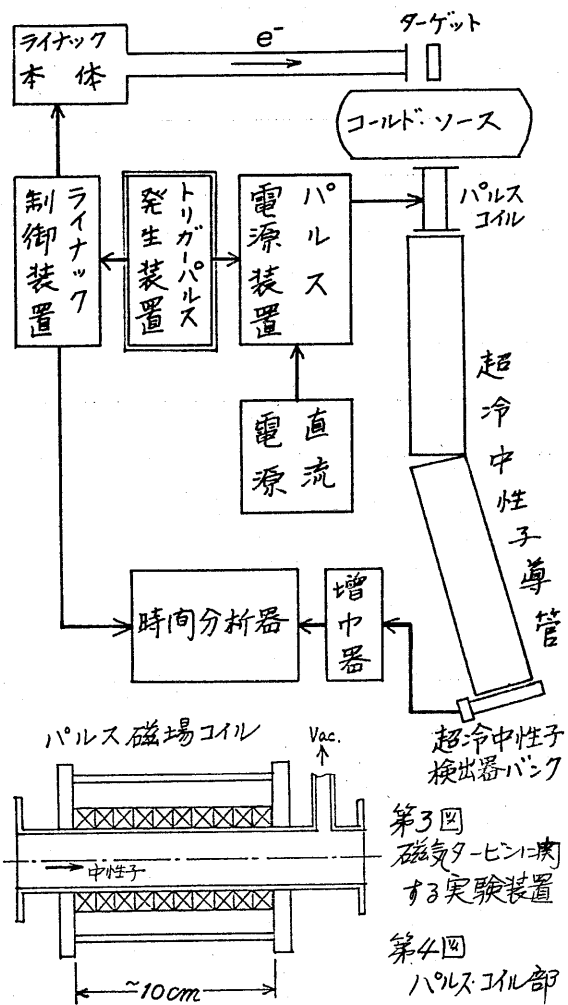 ライナック
本体
e⁻
ターゲット
コールド・ソース
パルス
コイル
ライナック
制御装置
トリガーパルス
発生装置
パルス
電源装置
直流
電源
超冷中性子導管
時間分析器
増巾器
超冷中性子
検出器バンク
パルス磁場コイル
Vac.
中性子
~10cm
第3図
磁気タービンに関
する実験装置
第4図
パルス・コイル部